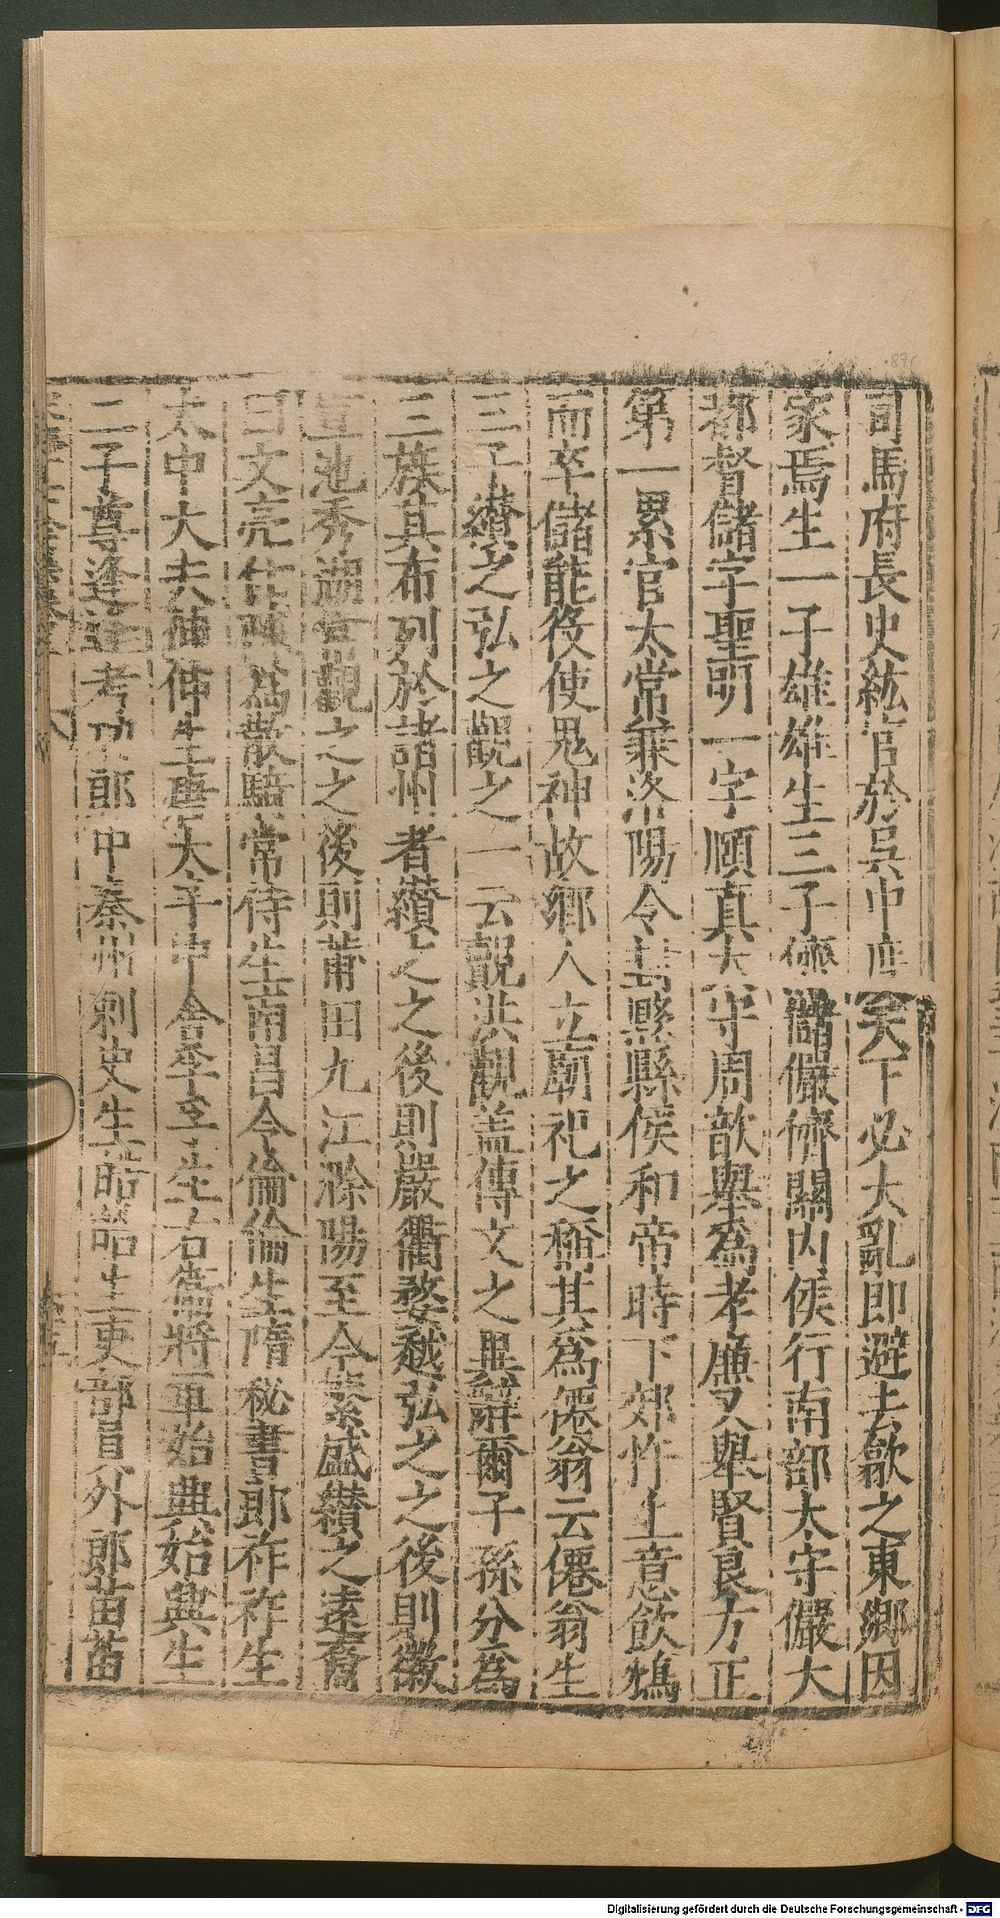 司馬府長史紘官於吳中度天下必大亂即避去歙之東鄉因
家焉生一子雄雄生三子儕儲儼儕關內侯行南部太守儼大
都督儲字聖明一字頤真太守周歆舉為孝廉又舉賢良方正
第一累官太常兼洛陽令縣縣侯和帝時下郊竹生意飲鴆
而卒儲能役使鬼神故鄉人立廟祀之稱其為僊翁云僊翁生
三子纘之弘之觀之一云觀洪觀盖傳文之異辭爾子孫分為
三族其布列於諸州者纘之之後則嚴衢婺越弘之之後則徽
宣池秀湖常觀之之後則莆田九江滁陽至今蕃盛纘之遠裔
曰文亮仕陳為散騎常侍生南昌令倫倫生隋秘書郎祚祚生
太中大夫仲仲生唐太平中舍季立生右衛將軍始興始興生
二子尊逢逢考功郎中秦州刺史生喆喆生吏部員外郎苗苗
Digitalisierung gefördert durch die Deutsche Forschungsgemeinschaft - DFG